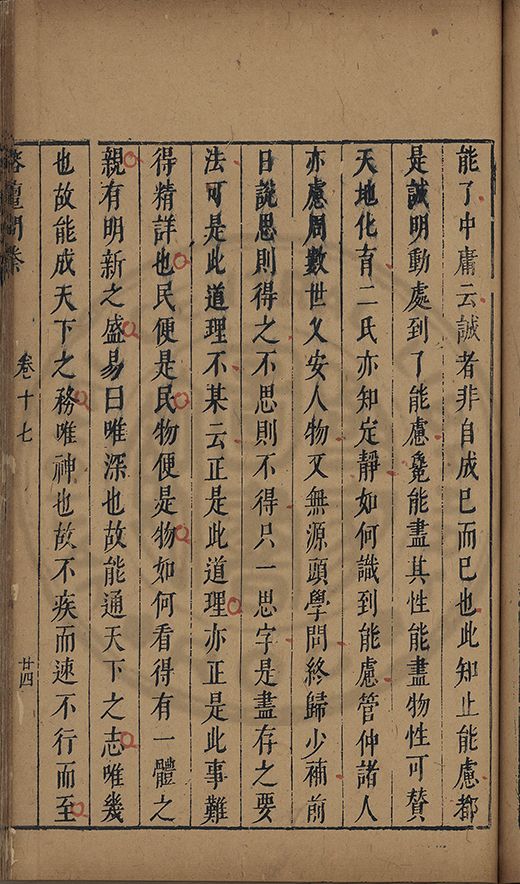 能了中庸云誠者非自成已而已也此知止能慮都
是誠明動處到了能慮䕫能盡其性能盡物性可贊
天地化育二氏亦知定靜如何識到能慮管仲諸人
亦慮周數世乂安人物又無源頭學問終歸少補前
日說思則得之不思則不得只一思字是盡存之要
法可是此道理不某云正是此道理亦正是此事難
得精詳也民便是民物便是物如何看得有一體之
親有明新之盛易曰唯深也故能通天下之志唯幾
也故能成天下之務唯神也故不疾而速不行而至
榕壇問業
卷十七
廿四